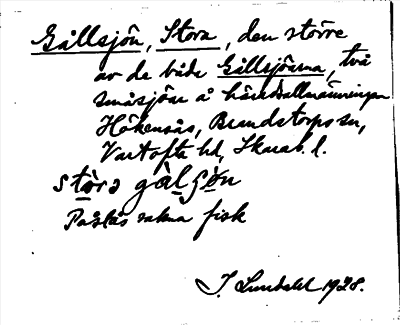 Gällsjön, Stora, den större
av de båda Gällsjöarna, två
småsjöar å häradsallmänningen
Hökensås, Brandstorps sn,
Vartofta hd, Skarab. l.
stora gälʃön
Påstås sakna fisk
J. Lundahl 1928.